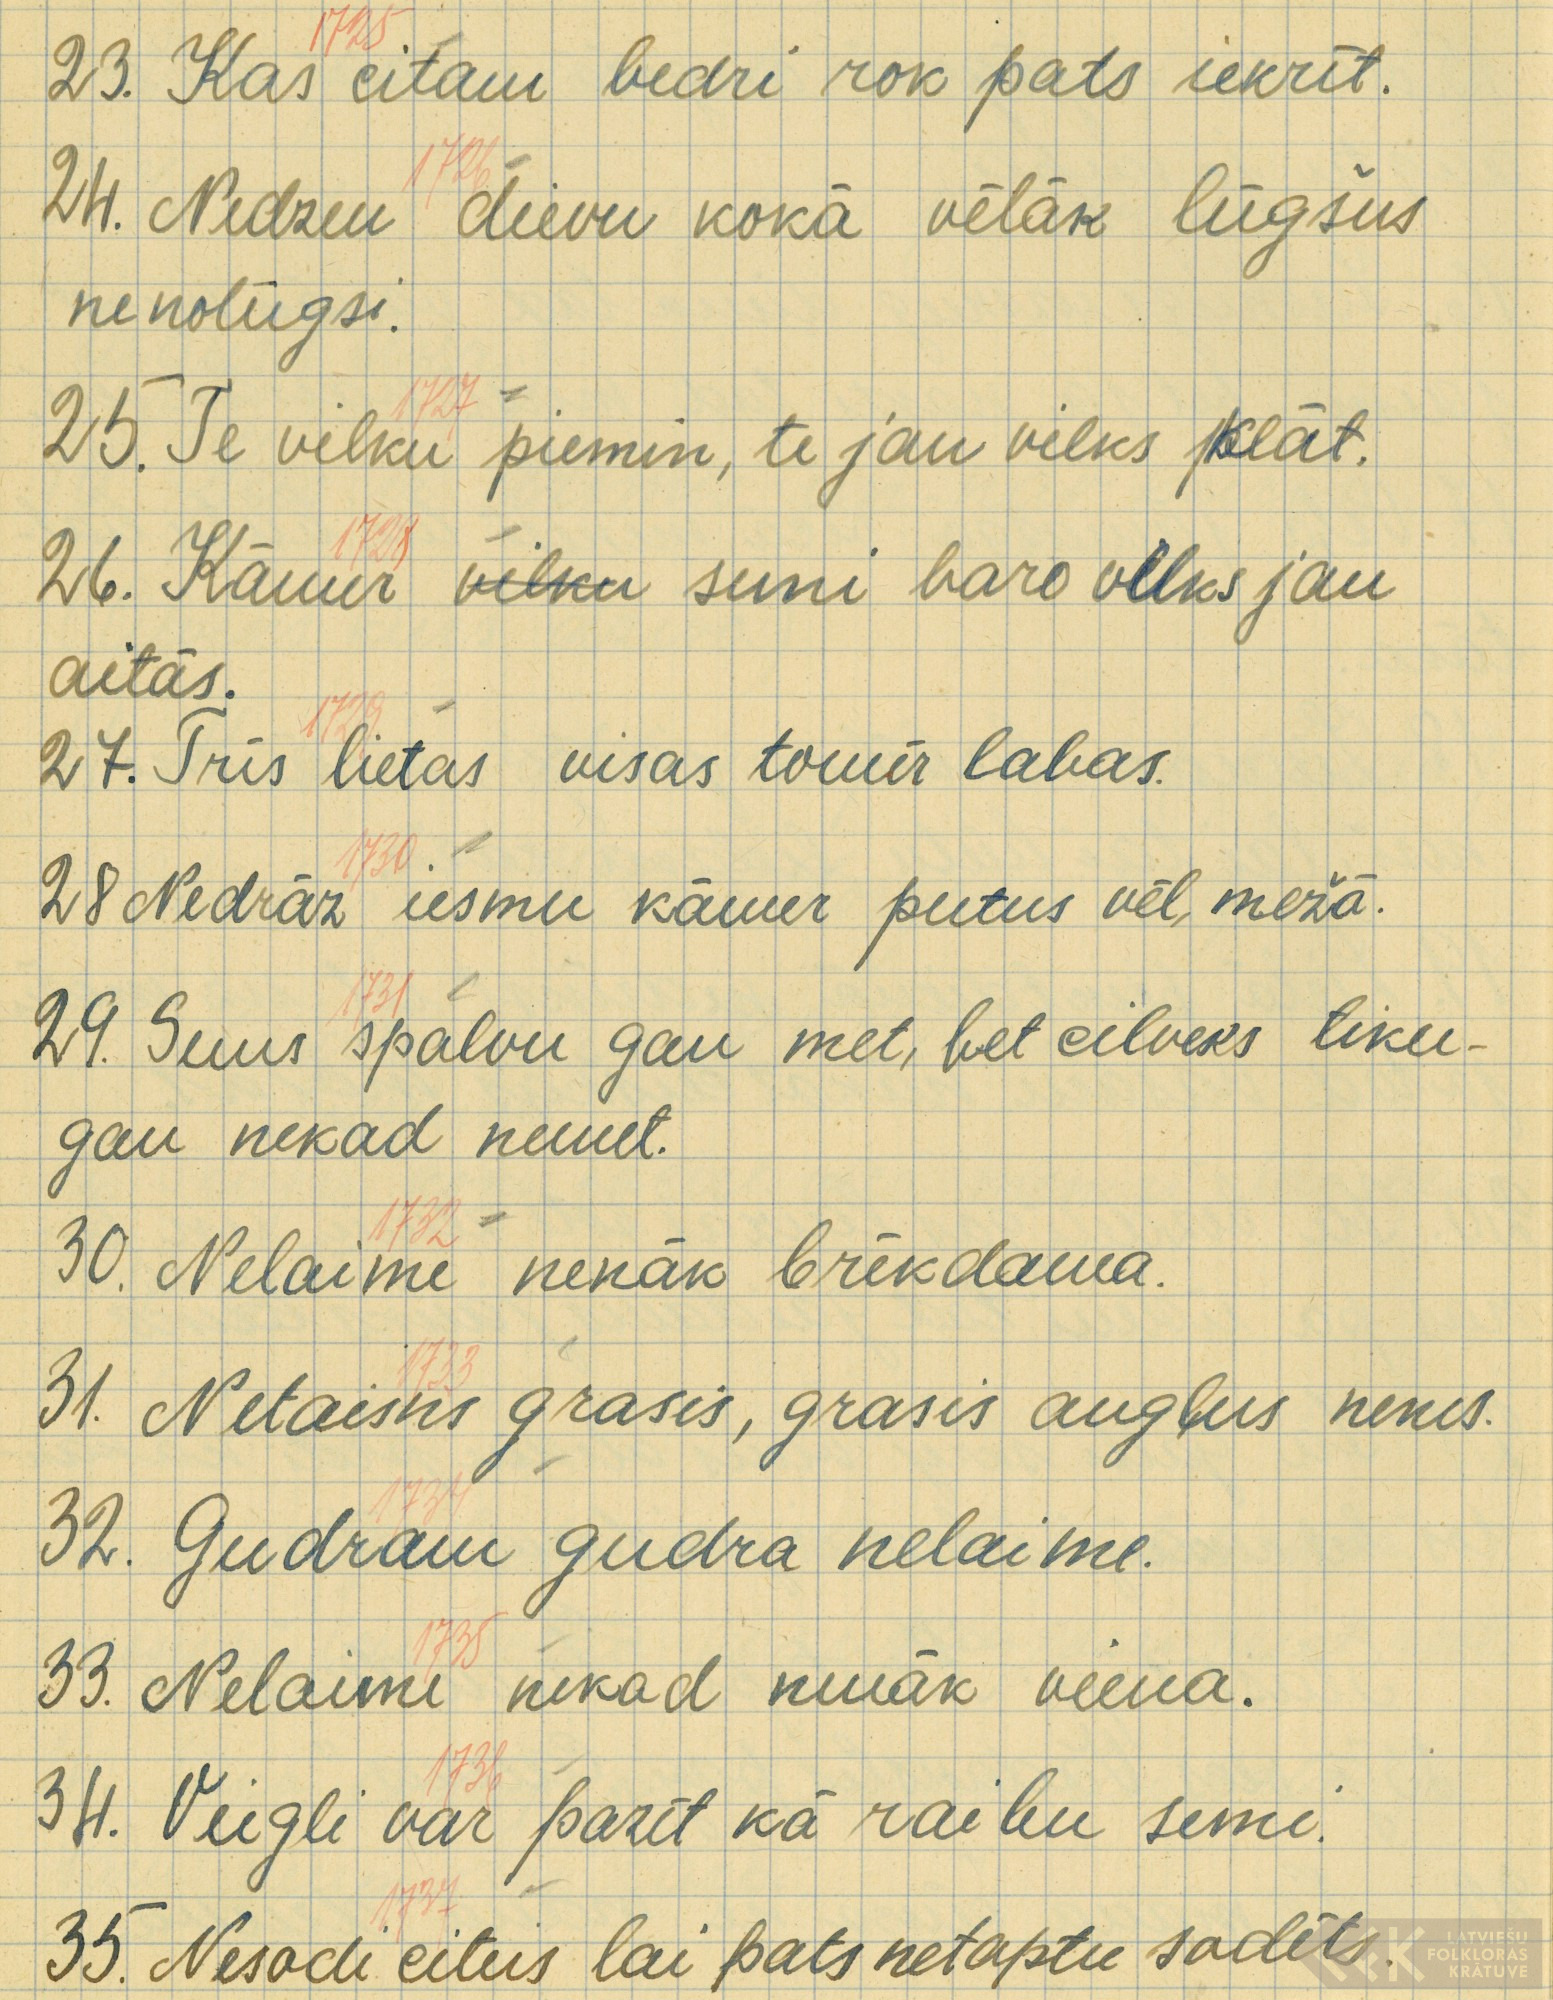 1725
23. Kas citam bedri rok pats iekrīt.
1726
24. Nedzen dievu kokā vēlāk lūgšus
nenolūgsi.
1727
25. Te vilku piemin, te jau vilks klāt.
1728
26. Kāmer vilku suni baro vilks jau
aitās.
1729
27. Trīs lietas visas tomēr labas.
1730
28 Nedrāz iesmu kāmer putns vēl, mežā.
1731
29. Suns spalvu gan met, bet cilveks tiku-
gan nekad nemet.
1732
30. Nelaime nenāk brēkdama.
1733
31. Netaisns grasis, grasis augļus nenes.
1734
32. Gudram gudra nelaime.
1735
33. Nelaime nekad nenāk viena.
1736
34. Viegli var pazīt kā raibu suni.
1737
35. Nesodi citus lai pats netaptu sodīts.
LATVIEŠU
FOLKLORAS
KRĀTUVE